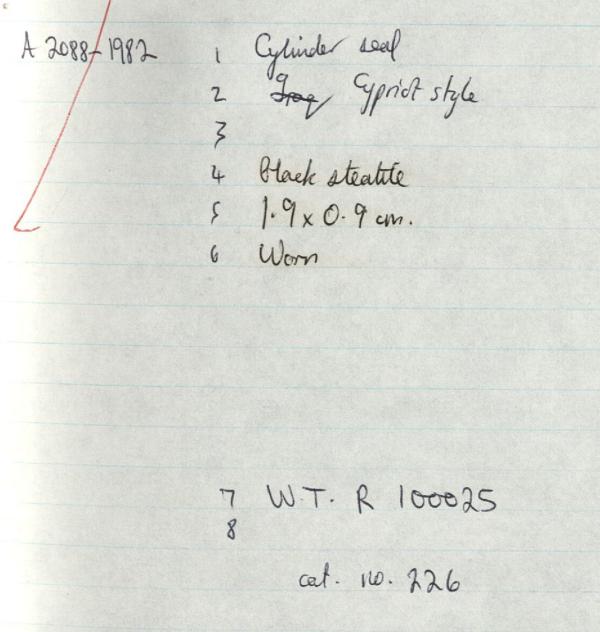 A 2088-1982 1 Cylinder seal
2 Iraq Cypriot style
3
4 Black steatite
5 1.9 x 0.9 cm.
6 Worn
7 W.T. R 100025
8
cat. no. 226